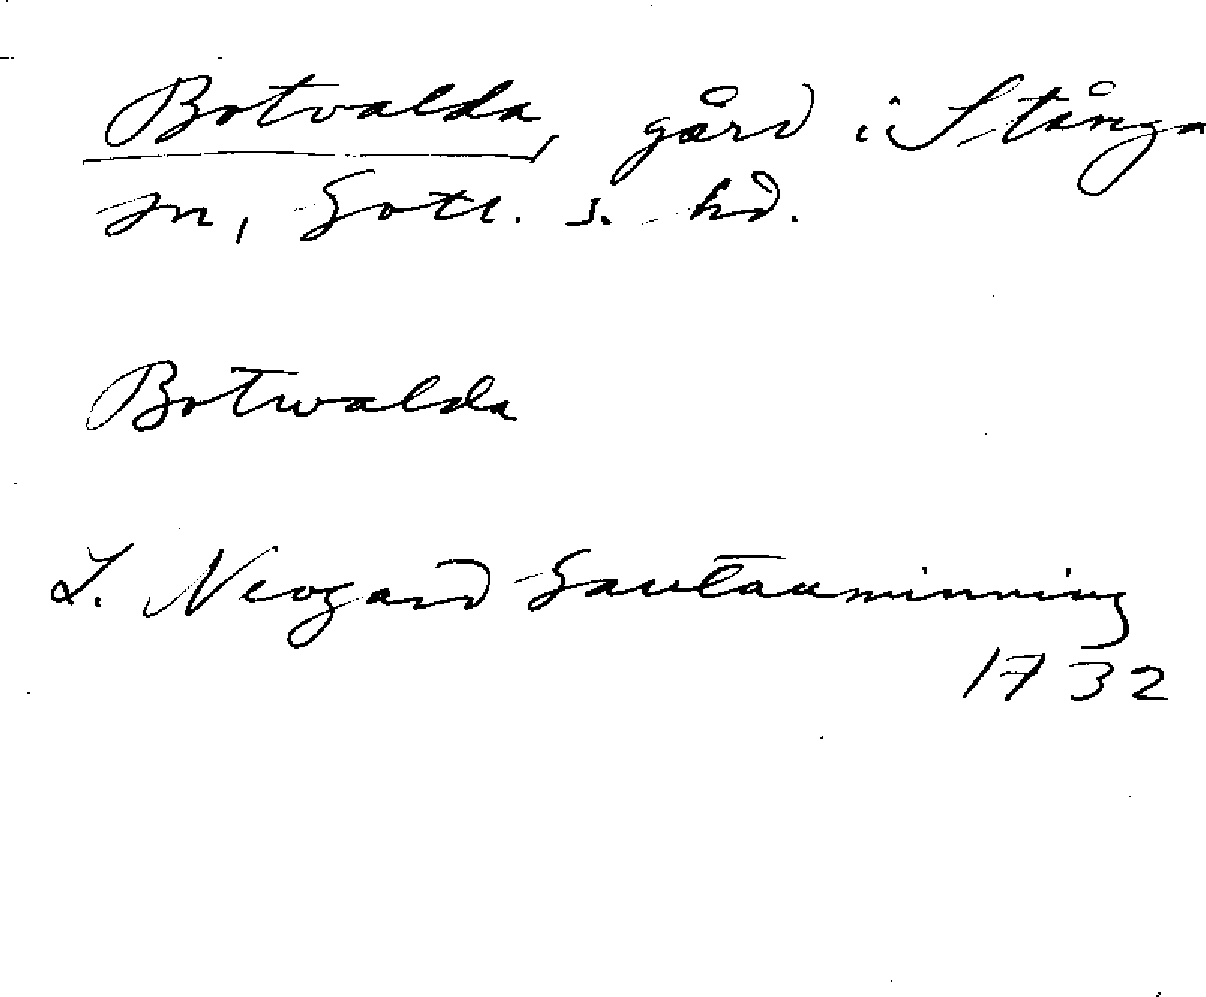 Botvalda, gård i Stånga
sn, Gotl. s. hd.
Botwalda
L. Neogard Gautauminning
1732